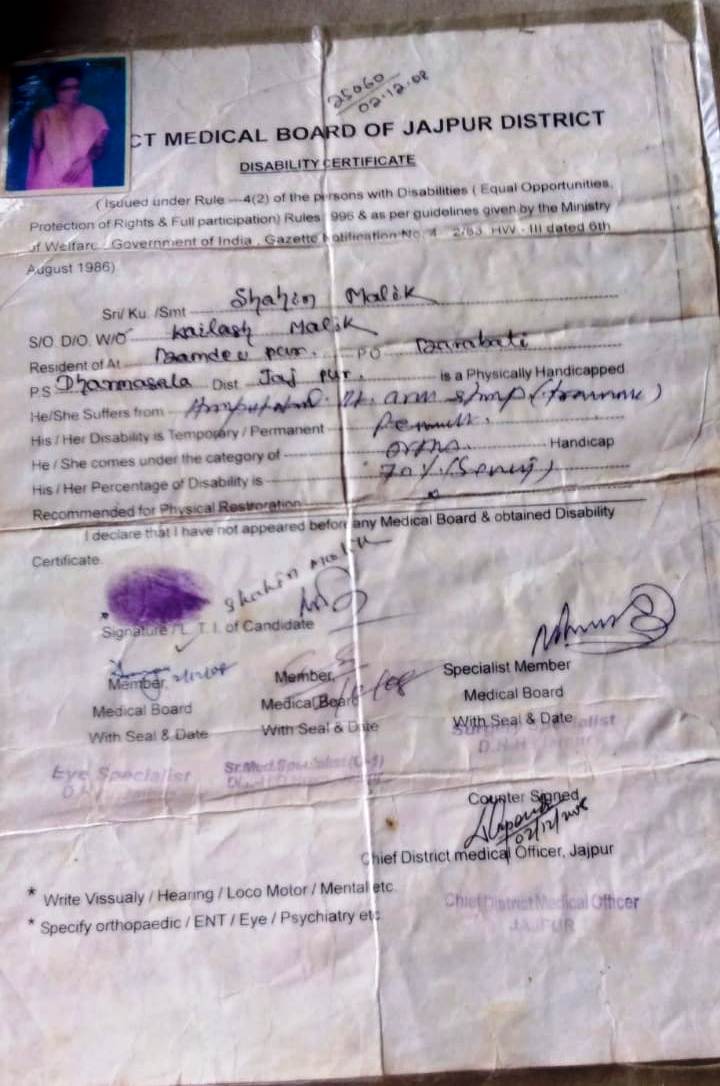 25060
02.12.08
CT MEDICAL BOARD OF JAJPUR DISTRICT
DISABILITY CERTIFICATE
( Isdued under Rule —4(2) of the persons with Disabilities ( Equal Opportunities,
Protection of Rights & Full participation) Rules 1996 & as per guidelines given by the Ministry
of Welfare, Government of India, Gazette Notification No. 4 - 2/83 HW - III dated 6th
August 1986)
Sri/ Ku. /Smt Shahin Malik
S/O. D/O. W/O Kailash Malik
Resident of At Bamdeu pur. PO Barabati
PS Dharmasala Dist Jaj pur. is a Physically Handicapped
He/She Suffers from arm stmp
His / Her Disability is Temporary / Permanent
He / She comes under the category of ortho. Handicap
His / Her Percentage of Disability is 70%
Recommended for Physical Restroration
I declare that I have not appeared before any Medical Board & obtained Disability
Certificate.
Shahin Malik
Signature / L. T. I. of Candidate
Member, Member, Specialist Member
Medical Board Medical Board Medical Board
With Seal & Date With Seal & Date With Seal & Date
Eye Specialist
Counter Signed
02/12/2008
Chief District medical Officer, Jajpur
* Write Vissualy / Hearing / Loco Motor / Mental etc.
Chief District Medical Officer
* Specify orthopaedic / ENT / Eye / Psychiatry etc
JAJPUR